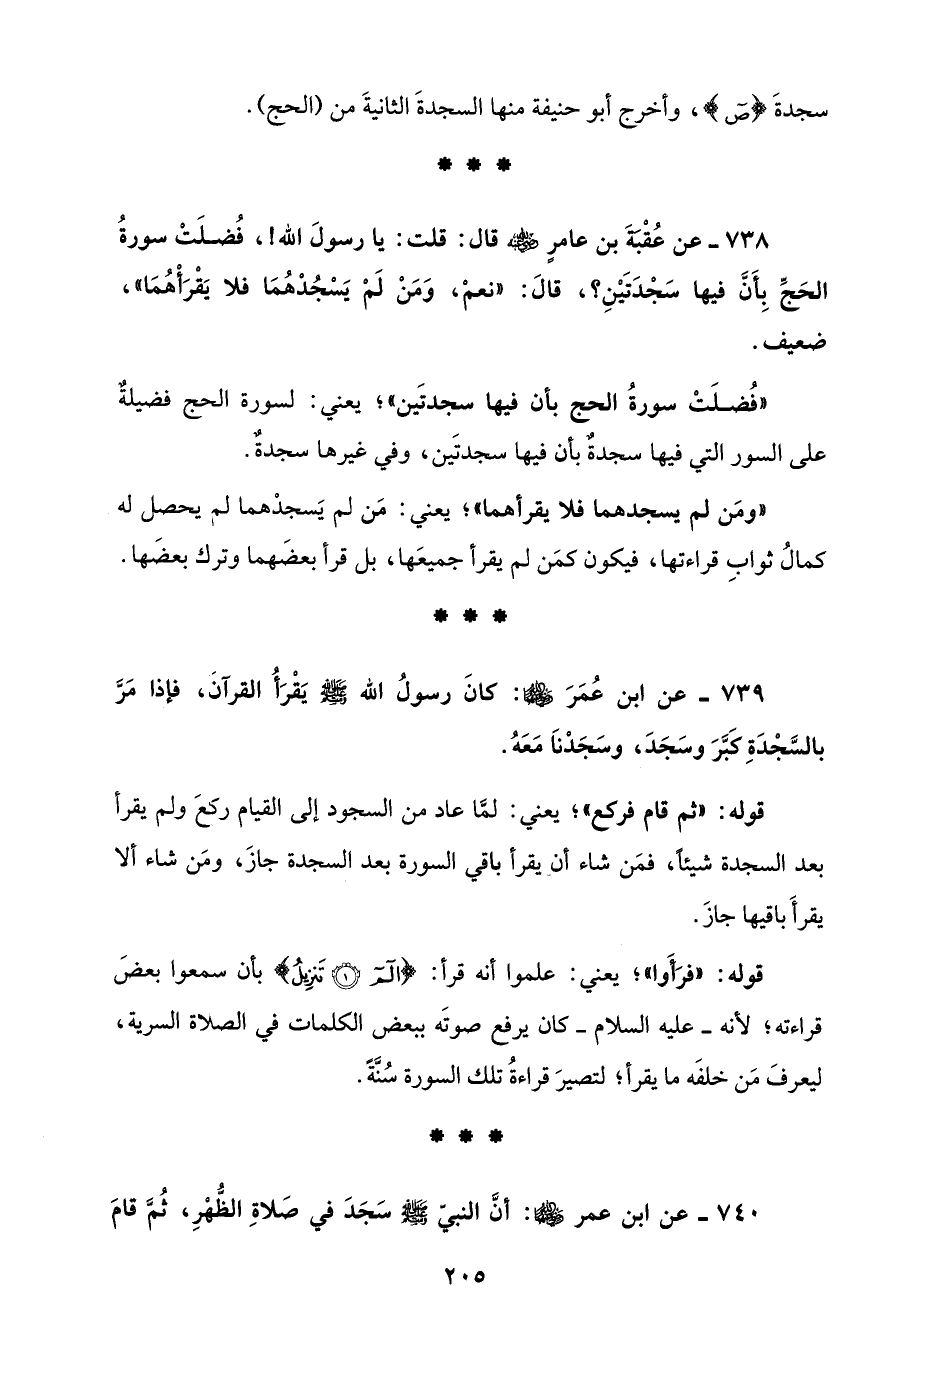 سجدةَ ﴿صٓ﴾، وأخرج أبو حنيفة منها السجدةَ الثانيةَ من (الحج).
* * *
٧٣٨ ـ عن عُقْبَةَ بن عامرٍ ﷺ قال: قلت: يا رسولَ الله!، فُضـلَتْ سورةُ
الحَجِّ بِأَنَّ فيها سَجْدَتَيْنِ؟، قالَ: «نعمْ، وَمَنْ لَمْ يَسْجُدْهُمَا فلا يَقْرَأْهُمَا»،
ضعيف.
«فُضـلَتْ سورةُ الحج بأن فيها سجدتَين»؛ يعني: لسورة الحج فضيلةٌ
على السور التي فيها سجدةٌ بأن فيها سجدتَين، وفي غيرها سجدةٌ.
«ومَن لم يسجدهما فلا يقرأهما»؛ يعني: مَن لم يَسجدْهما لم يحصل له
كمالُ ثوابِ قراءتها، فيكون كمَن لم يقرأ جميعَها، بل قرأ بعضَهما وترك بعضَها.
* * *
٧٣٩ ـ عن ابن عُمَرَ ﵄: كانَ رسولُ الله ﷺ يَقْرَأُ القرآنَ، فإذا مَرَّ
بالسَّجْدَةِ كَبَّرَ وسَجَدَ، وسَجَدْنَا مَعَهُ.
قوله: «ثم قام فركع»؛ يعني: لمَّا عاد من السجود إلى القيام ركعَ ولم يقرأ
بعد السجدة شيئاً، فمَن شاء أن يقرأ باقي السورة بعد السجدة جازَ، ومَن شاء ألا
يقرأَ باقيها جازَ.
قوله: «فرَأَوا»؛ يعني: علموا أنه قرأ: ﴿الٓمٓ ۝١ تَنزِيلُ﴾ بأن سمعوا بعضَ
قراءته؛ لأنه ـ عليه السلام ـ كان يرفع صوتَه ببعض الكلمات في الصلاة السرية،
ليعرفَ مَن خلفَه ما يقرأ؛ لتصيرَ قراءةُ تلك السورة سُنَّةً.
* * *
٧٤٠ ـ عن ابن عمر ﵄: أنَّ النبيّ ﷺ سَجَدَ في صَلاةِ الظُّهْرِ، ثُمَّ قامَ
٢٠٥